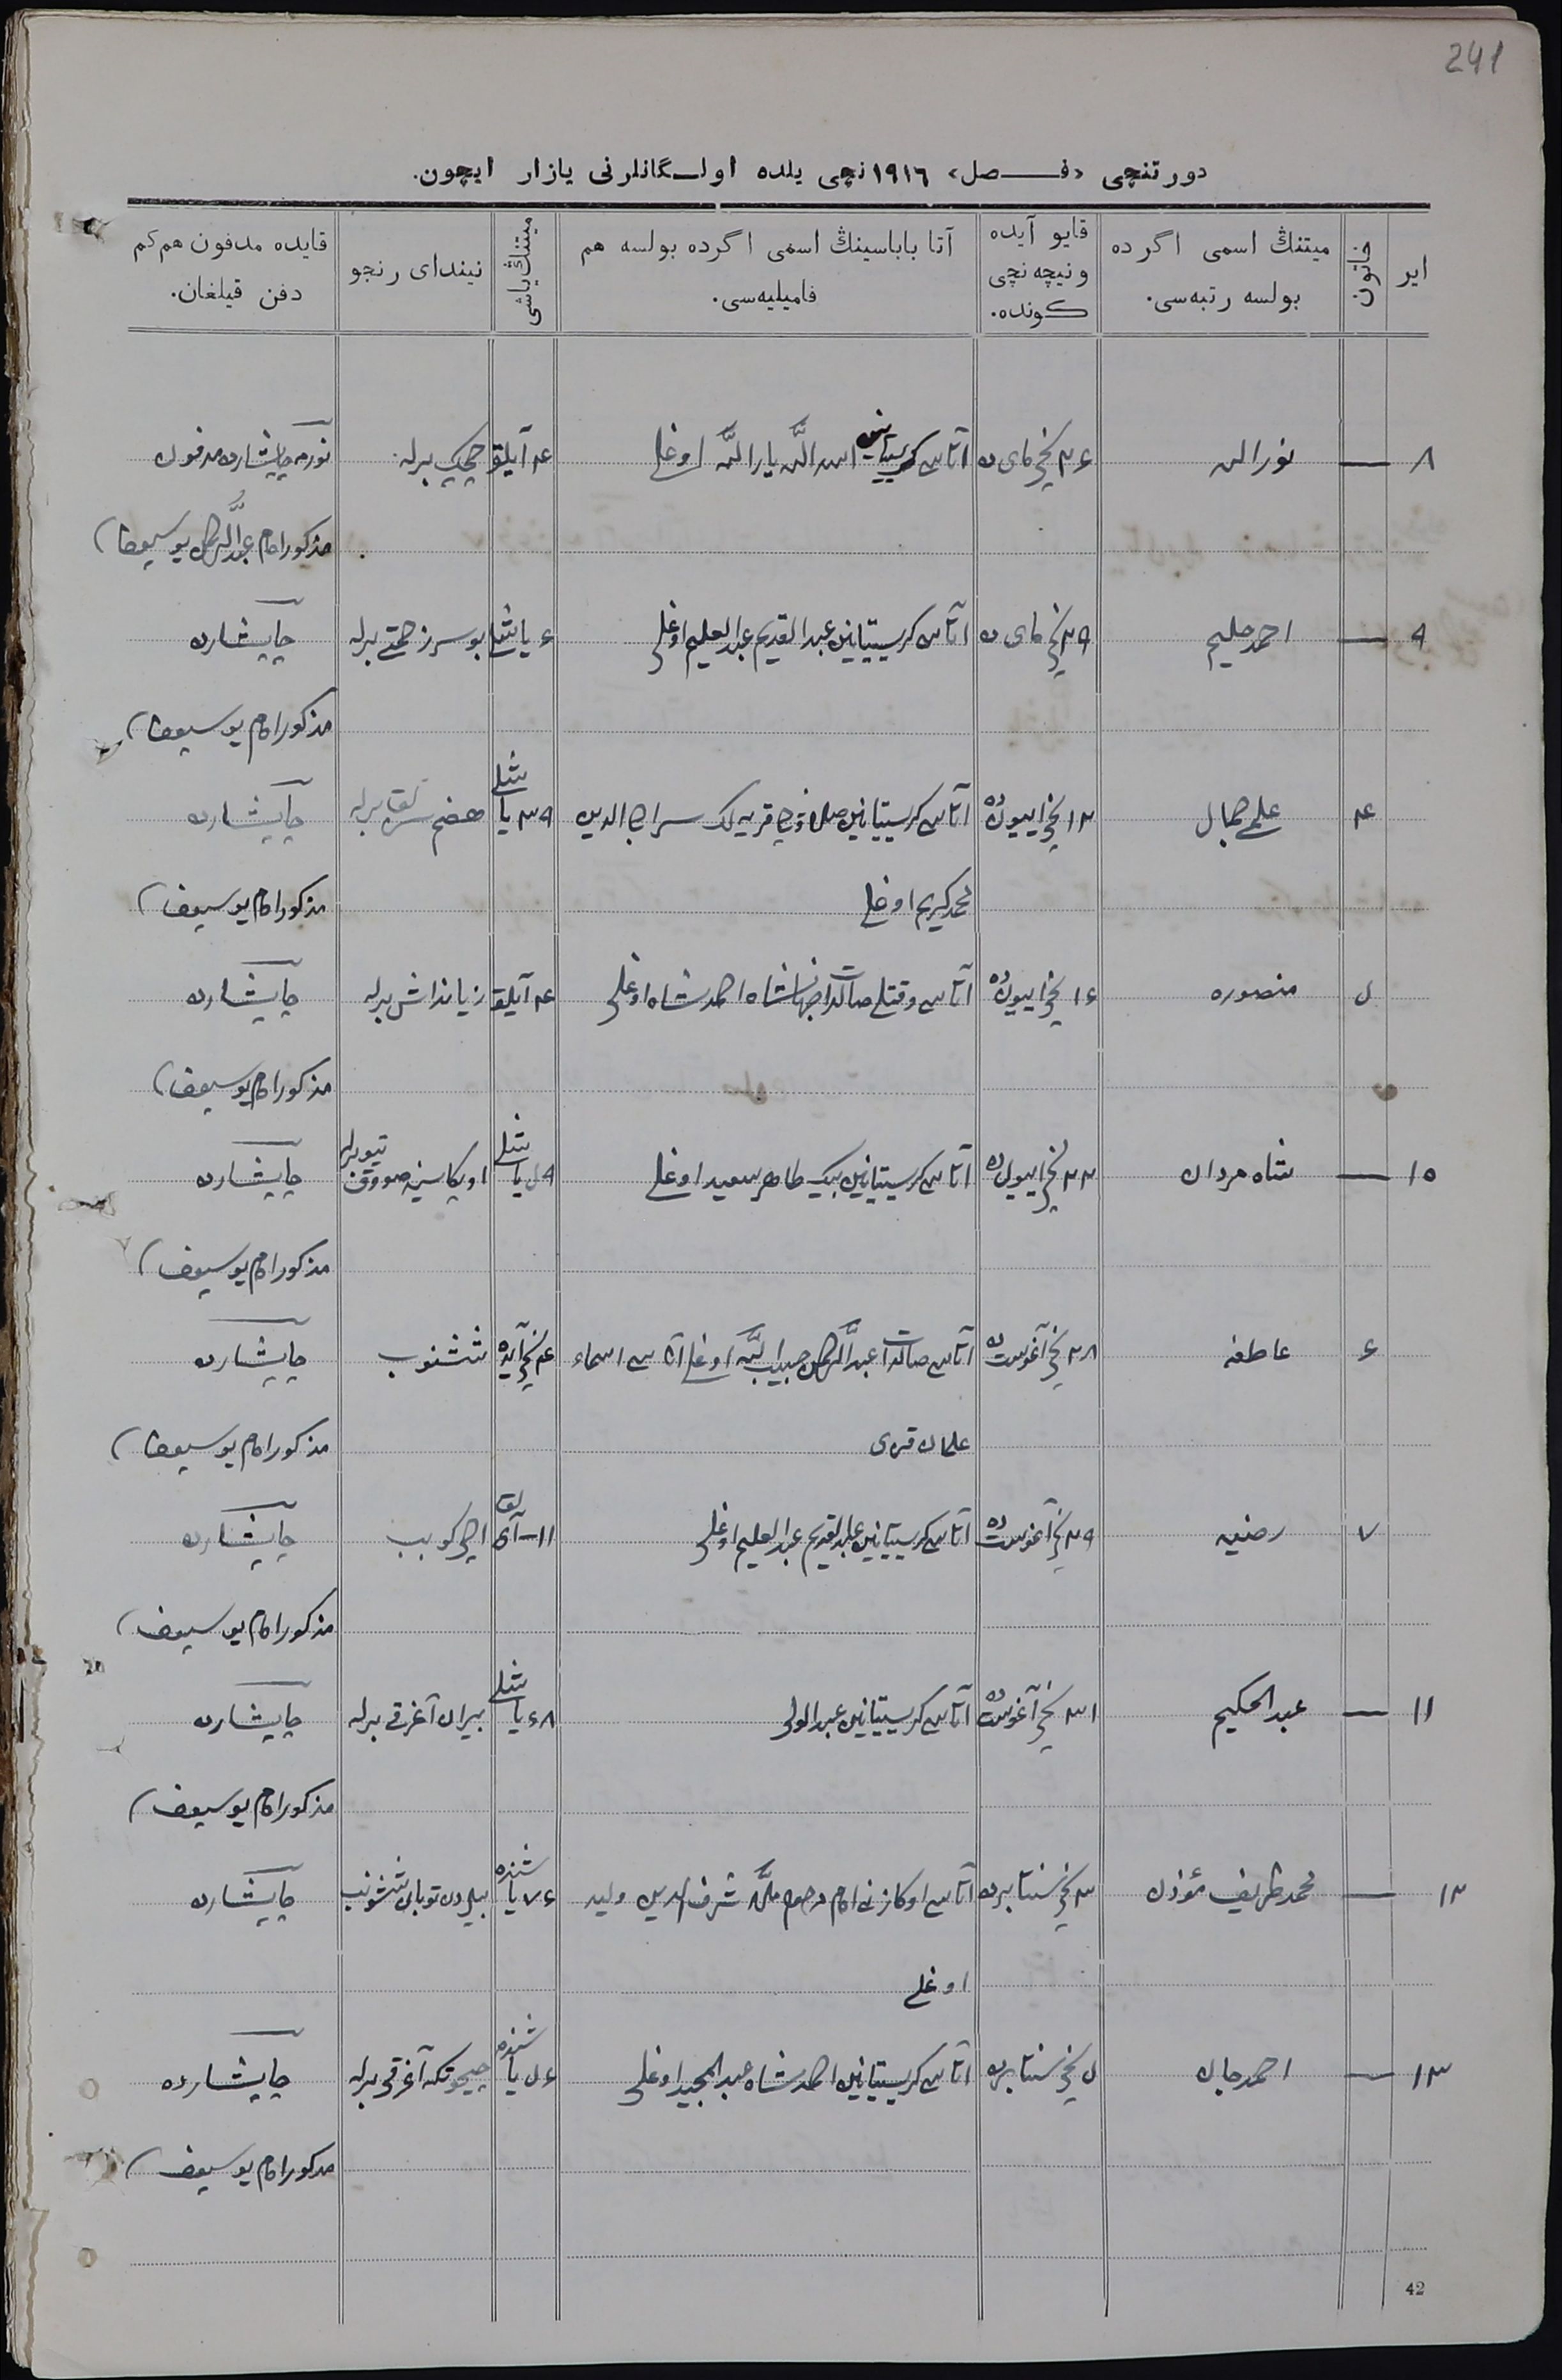 241
دورتنچی «فـــصل» ١٩١٦ نچی یلده اولـگانلرنی یازار ایچون.
ایر
خاتون
میتنڭ اسمی اگر ده بولسه رتبه‌سی.
قایو آیده و نیچه نچی کونده.
آتا باباسینڭ اسمی اگرده بولسه هم فامیلیه‌سی.
میتنڭ یاشی
نیندای رنجو
قایده مدفون هم کم دفن قیلغان.
٨ — نورالله ٢٦ نچی مای ده آتاسی کریستیانین اسدالله یارالله اوغلی ٤ آیلق چچک برله
مذکور امام عبدالرحمن یوسیوف)
٩ — احمد حلیم ٢٩ نچی مای ده آتاسی کریستیانین عبدالقدیم عبدالعلیم اوغلی ٦ یاشلی چاپشارده
مذکور امام یوسیوف)
٤ علمی جمال ١٢ نچی اییولده آتاسی کریستیانین سراج الدین ٣٩ یاشلی هضم سزلق برله چاپشارده
محمد کریم اوغلی
مذکور امام یوسیوف)
٥ منصوره ١٦ نچی اییولده آتاسی وقتلی صالدات جهانشاه احمدشاه اوغلی ٤ آیلق زیانداش برله چاپشارده
مذکور امام یوسیوف)
١٠ — شاه مردان ٢٢ نچی اییولده آتاسی کریستیانین بیک طاهر سعید اوغلی ٥٩ یاشلی اوپکاسینه صووق تیو برله چاپشارده
مذکور امام یوسیوف)
٦ عاطفه ٢٨ نچی آغوستده آتاسی صالدات عبدالرحمن حبیب الله اوغلی آناسی اسماء ٤ نچی آیده ششنوب چاپشارده
علمان قزی
مذکور امام یوسیوف)
٧ رضیه ٢٩ نچی آغوستده آتاسی کریستیانین عبدالقدیم عبدالعلیم اوغلی ١١ - آی لق اچی کوبب چاپشارده
مذکور امام یوسیوف)
١١ — عبدالحکیم ٣١ نچی آغوستده آتاسی کریستیانین عبدالولی ٦٨ یاشلی بیران آغرقی برله چاپشارده
مذکور امام یوسیوف)
١٢ — محمد ظریف مؤذن ٣ نچی سنتابرده آتاسی اوکازنی امام مرحوم ملا شرف الدین ولید ٧٦ یاشنده بیلدن توبان ششونب چاپشارده
اوغلی
١٣ — احمد جان ٥ نچی سنتابرده آتاسی کریستیانین احمدشاه عبدالمجید اوغلی ٥٦ یاشنده چیچوتکه آغرقی برله چاپشارده
مذکور امام یوسیوف)
42